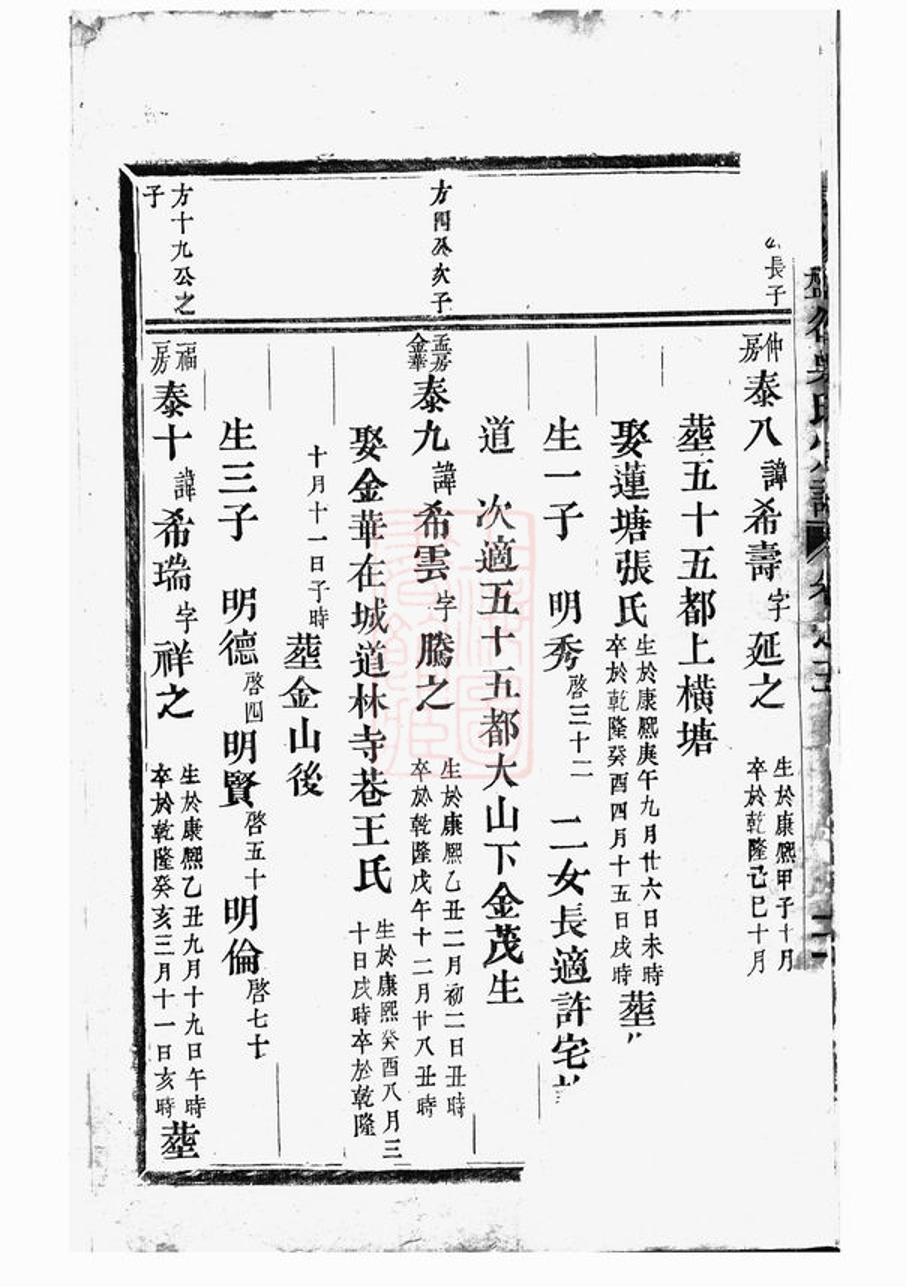 長子
仲房 泰八 諱 希壽 字 延之 生於康熙甲子十月
卒於乾隆己巳十月
葬五十五都上橫塘
娶蓮塘張氏 生於康熙庚午九月廿六日未時
卒於乾隆癸酉四月十五日戌時 葬
生一子 明秀 啓三十二 二女長適許宅
道 次適五十五都大山下金茂生
方四公次子
孟房金華 泰九 諱 希雲 字 騰之 生於康熙乙丑二月初二日丑時
卒於乾隆戊午十二月廿八丑時
娶金華在城道林寺巷王氏 生於康熙癸酉八月三
十日戌時卒於乾隆
十月十一日子時 葬金山後
生三子 明德 啓四 明賢 啓五十 明倫 啓七十
方十九公之
子
福一房 泰十 諱 希瑞 字 祥之 生於康熙乙丑九月十九日午時
卒於乾隆癸亥三月十一日亥時 葬